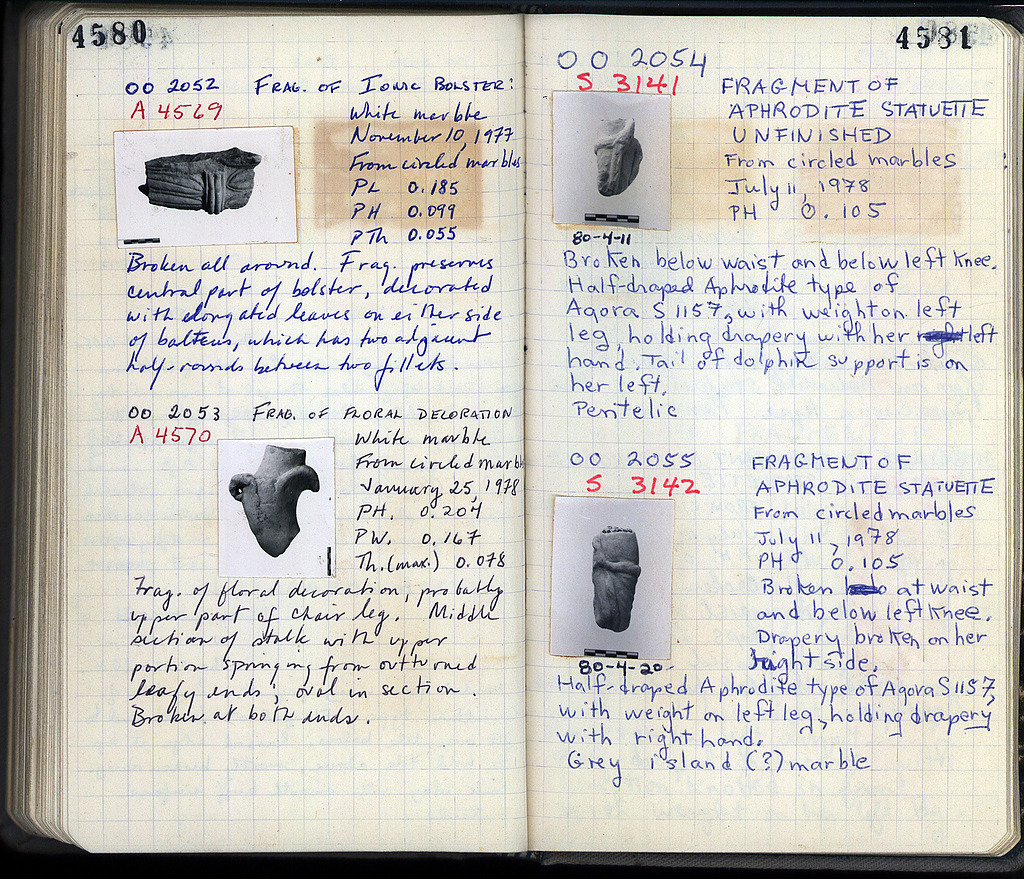 4580
OO 2052 FRAG. OF IONIC BOLSTER:
A 4569
White marble
November 10, 1977
From circled marbles
PL 0.185
PH 0.099
PTh 0.055
Broken all around. Frag. preserves
central part of bolster, decorated
with elongated leaves on either side
of balteus, which has two adjacent
half-rounds between two fillets.
OO 2053 FRAG. OF FLORAL DECORATION
A 4570
White marble
From circled marbles
January 25, 1978
PH. 0.204
PW. 0.167
Th. (max.) 0.078
Frag. of floral decoration, probably
upper part of chair leg. Middle
section of stalk with upper
portion springing from outturned
leafy ends; oval in section.
Broken at both ends.
4581
OO 2054
S 3141
FRAGMENT OF
APHRODITE STATUETTE
UNFINISHED
From circled marbles
July 11, 1978
PH 0.105
80-4-11
Broken below waist and below left knee.
Half-draped Aphrodite type of
Agora S 1157, with weight on left
leg, holding drapery with her right left
hand. Tail of dolphin support is on
her left.
Pentelic
OO 2055
S 3142
FRAGMENT OF
APHRODITE STATUETTE
From circled marbles
July 11, 1978
PH 0.105
Broken at waist
and below left knee.
Drapery broken on her
right side.
80-4-20
Half-draped Aphrodite type of Agora S 1157,
with weight on left leg, holding drapery
with right hand.
Grey island (?) marble